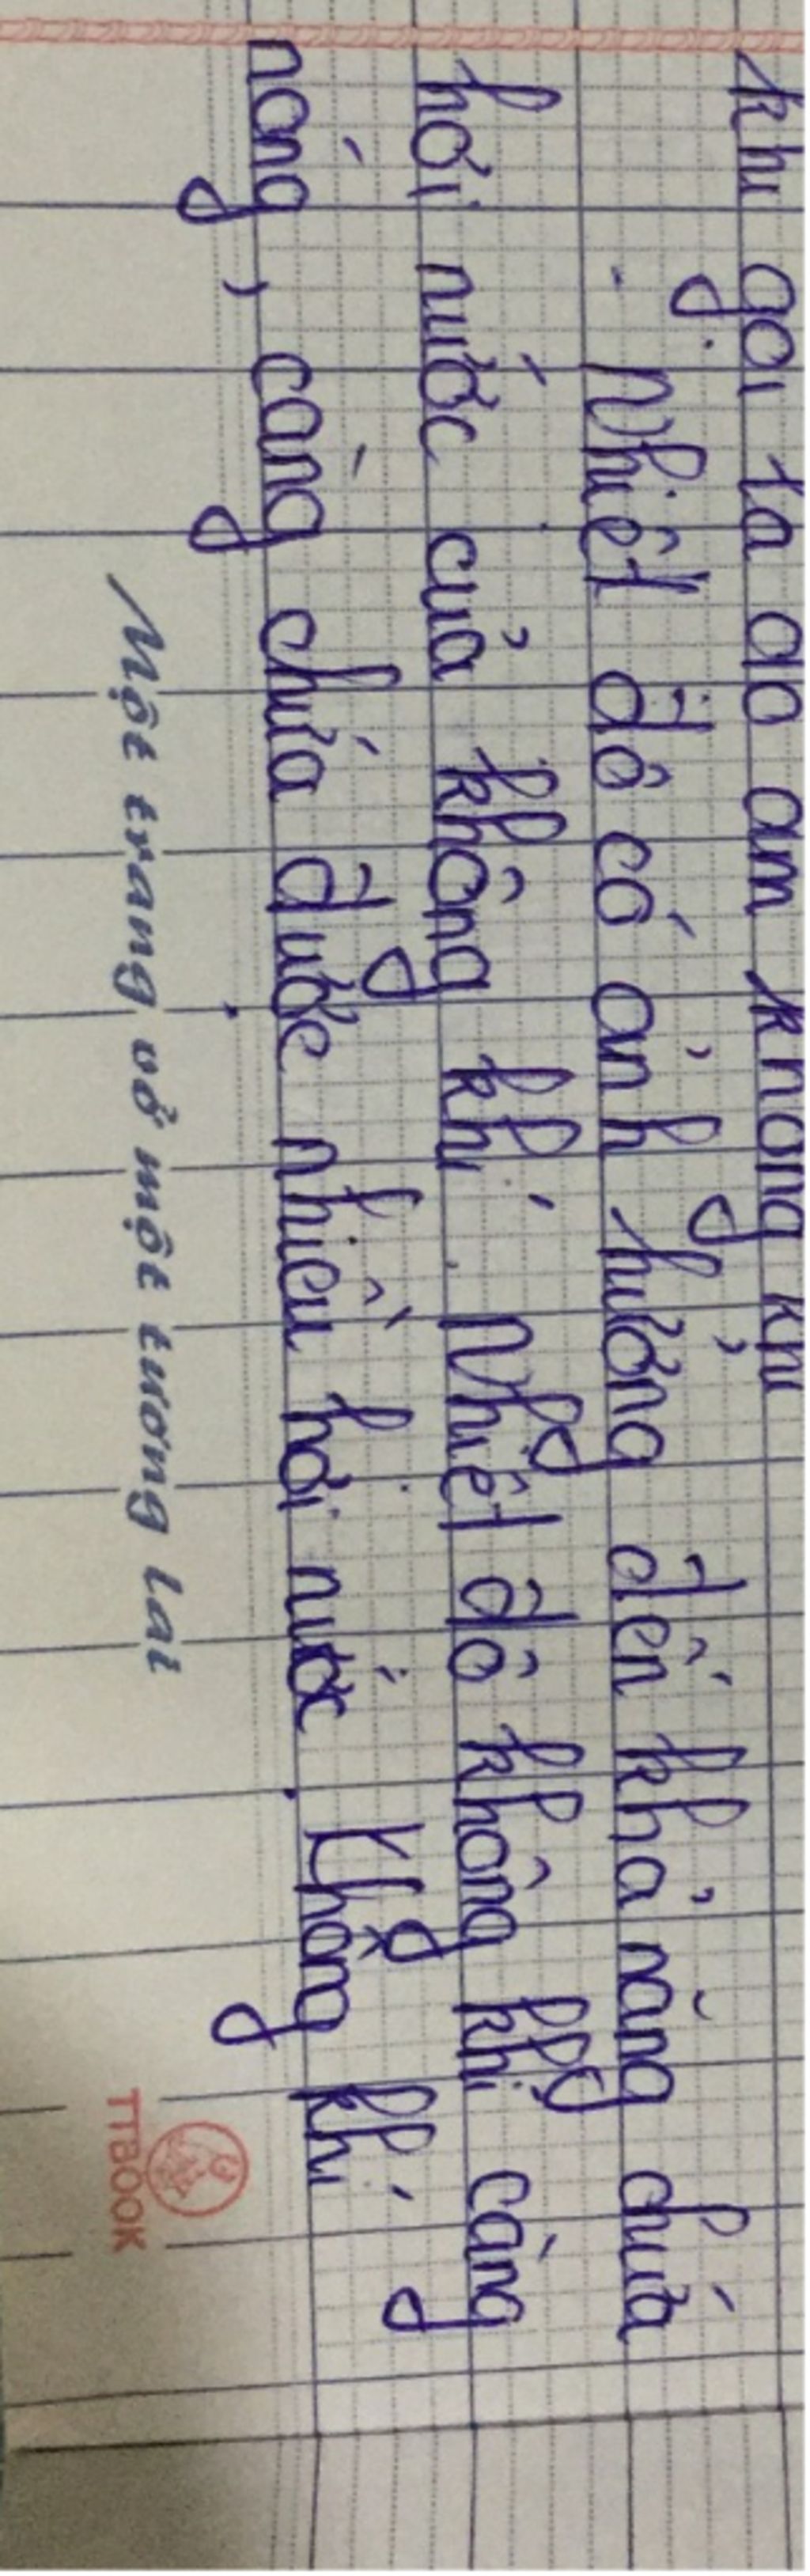 khí gọi là độ ẩm không khí
- Nhiệt độ có ảnh hưởng đến khả năng chứa
hơi nước của không khí. Nhiệt độ không khí càng
nóng, càng chứa được nhiều hơi nước. Không khí
Một trang vở một tương lai
TTBOOK